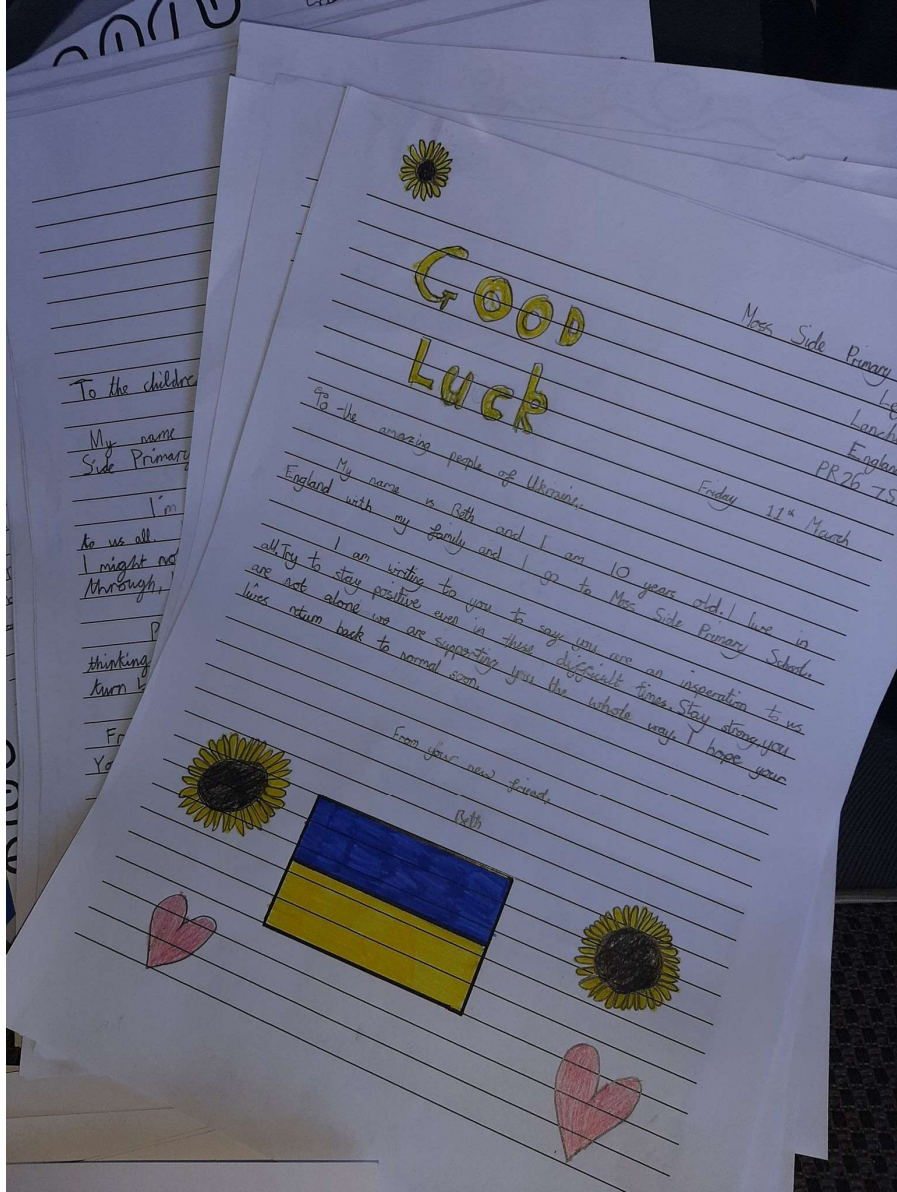 To the childre
My name
Side Primary
I'm
to us all.
I might no
through,
thinking
turn
Fr
Yo
GOOD
Luck
Moss Side Primary
Le
Lanch
England
PR26 7S
Friday 11th March
To the amazing people of Ukraine,
My name is Beth and I am 10 years old. I live in
England with my family and I go to Moss Side Primary School.
I am writing to you to say you are an insperation to us
all. Try to stay positive even in these difficult times. Stay strong, you
are not alone we are supporting you the whole way. I hope your
lives return back to normal soon.
From your new friend,
Beth